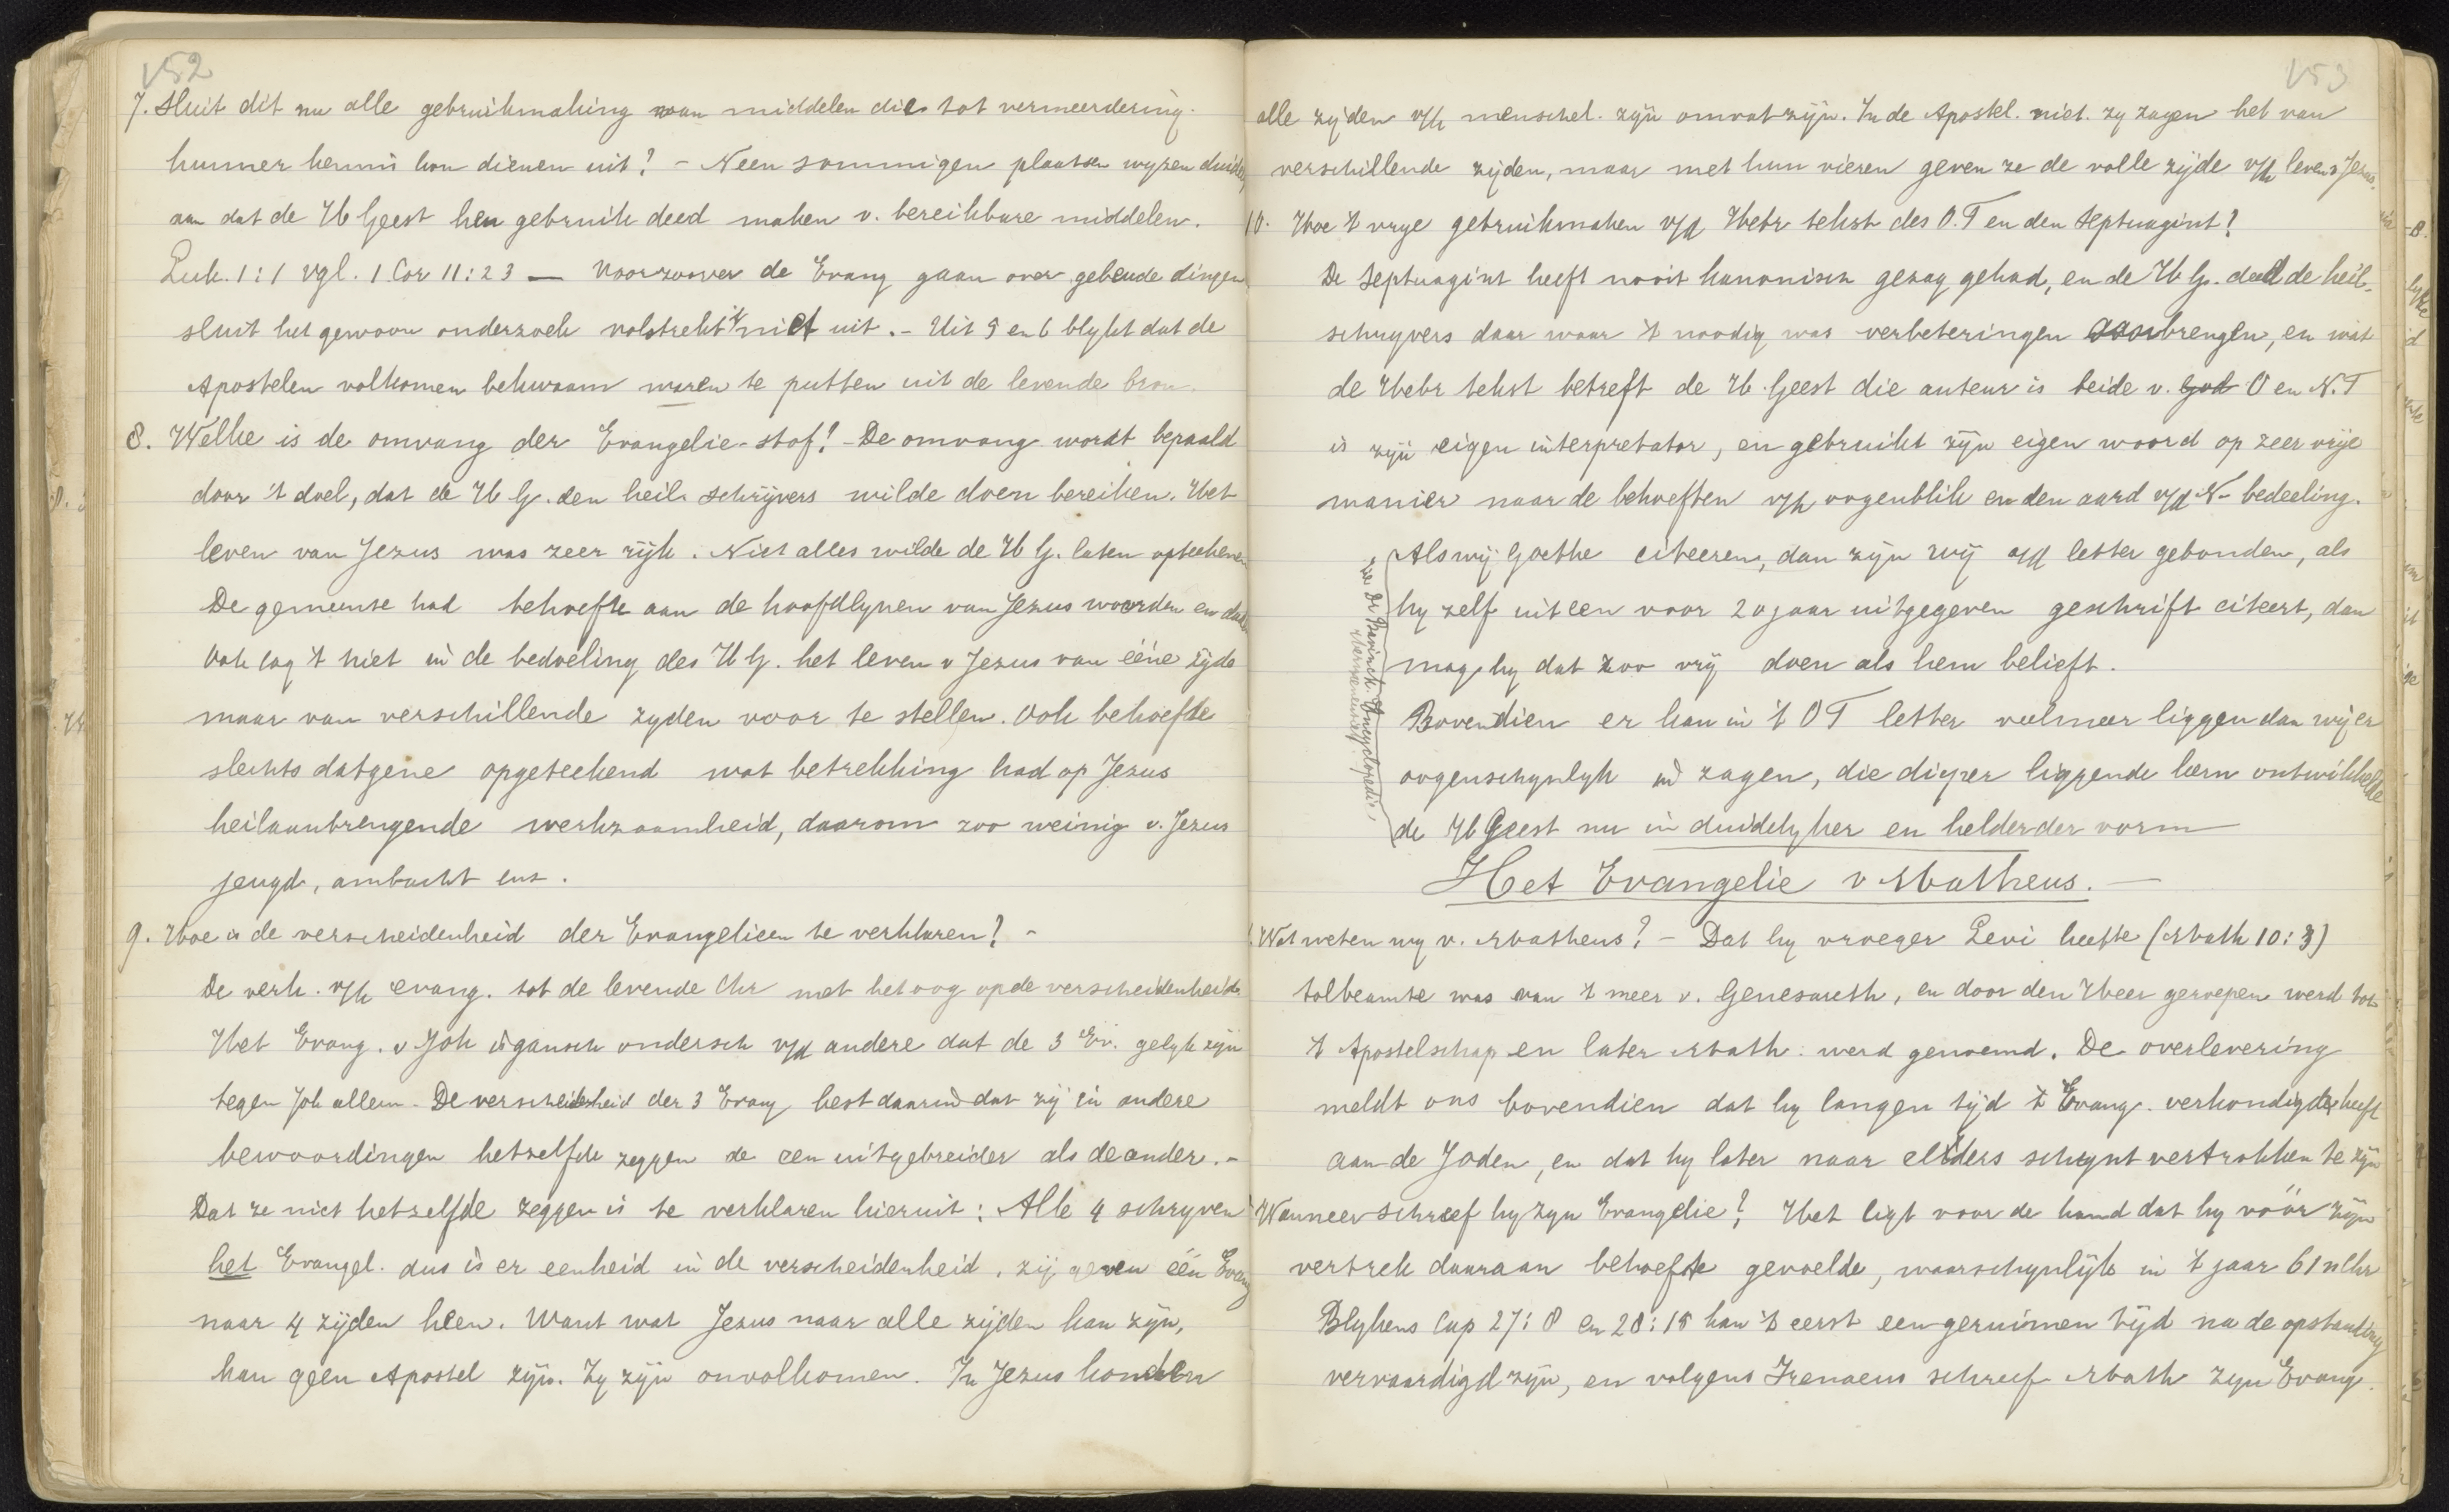 152
7. Sluit dit nu alle gebruikmaking van middelen die tot vermeerdering
hunner kennis kon dienen uit? – Neen sommigen plaatsen wyzen duidel
aan dat de H Geest hen gebruik deed maken v. bereikbare middelen.
Luk. 1:1 vgl. 1 Cor 11:23 — Voorzoover de Evang gaan over gebeude dingen
sluit het gewoon onderzoek volstrekt niet uit. – Uit 5 en 6 blykt dat de
Apostelen volkomen bekwaam waren te putten uit de levende bron.
8. Welke is de omvang der Evangelie-stof? – De omvang wordt bepaald
door 't doel, dat de H G. den heil. schrijvers wilde doen bereiken. Het
leven van Jezus was zeer rijk. Niet alles wilde de H G. laten opteekenen
De gemeente had behoefte aan de hoofdlynen van Jezus woorden en daden
Ook lag 't niet in de bedoeling des H G. het leven v Jezus van ééne zijde
maar van verschillende zyden voor te stellen. Ook behoefde
slechts datgene opgeteekend wat betrekking had op Jezus
heilaanbrengende werkzaamheid, daarom zoo weinig v. Jezus
jeugd, ambacht enz.
9. Hoe is de verscheidenheid der Evangelieen te verklaren? –
De verh. v/h evang. tot de levende Chr met het oog op de verscheidenheid
Het Evang. v Joh is gansch andersch v/d andere dat de 3 Ev. gelyk zijn
tegen Joh alleen. De verscheidenheid der 3 Evang best daarin dat zij in andere
bewoordingen hetzelfde zeggen de een uitgebreider als de ander. –
Dat ze niet hetzelfde zeggen is te verklaren hieruit: Alle 4 schryven
het Evangel. dus is er eenheid in de verscheidenheid, zij geven één Evang
naar 4 zijden heen. Want wat Jezus naar alle zijden kan zijn,
kan geen Apostel zijn. Zy zijn onvolkomen. In Jezus konden
153
alle zijden v/h menschel. zijn omvat zijn. In de Apostel. niet. zy zagen het van
verschillende zijden, maar met hun vieren geven ze de volle zijde v/h leven v Jezus.
10. Hoe 't vrye gebruikmaken v/d Hebr tekst des O.T en den Septuagint?
De Septuagint heeft nooit kanonisch gezag gehad, en de H G. deed de heil.
schryvers daar waar 't noodig was verbeteringen aanbrengen, en wat
de Hebr tekst betreft de H. Geest die auteur is beide v. God O en N.T
is zijn eigen interpretator, en gebruikt zijn eigen woord op zeer vrije
manier naar de behoeften v/h oogenblik en den aard v/d N- bedeeling.
Als wij Goethe citeeren, dan zijn wij a/d letter gebonden, als
hy zelf uit een voor 20 jaar uitgegeven geschrift citeert, dan
mag hy dat zoo vrij doen als hem belieft.
Bovendien er kan in 't O T letter veel meer liggen dan wij er
oogenschynlyk in zagen, die dieper liggende kern ontwikkelde
de H Geest nu in duidelyker en helderder vorm
zie Dr Bavinck. Encyclopedie,
Het Evangelie v Matheus. —
1. Wat weten wy v. Matheus? – Dat hy vroeger Levi heette (Math 10:3)
tolbeamte was aan 't meer v. Genesareth, en door den Heer geroepen werd tot
't Apostelschap en later Math: werd genoemd. De overlevering
meldt ons bovendien dat hy langen tijd 't Evang. verkondigde heeft
aan de Joden, en dat hy later naar elders schynt vertrokken te zijn
Wanneer schreef hy zyn Evangelie? Het ligt voor de hand dat hy vóór zijn
vertrek daaraan behoefte gevoelde, waarschynlijk in 't jaar 61 n Chr
Blykens Cap 27:8 en 28:15 kan 't eerst een geruimen tijd na de opstanding
vervaardigd zijn, en volgens Irenaeus schreef Math zyn Evang.